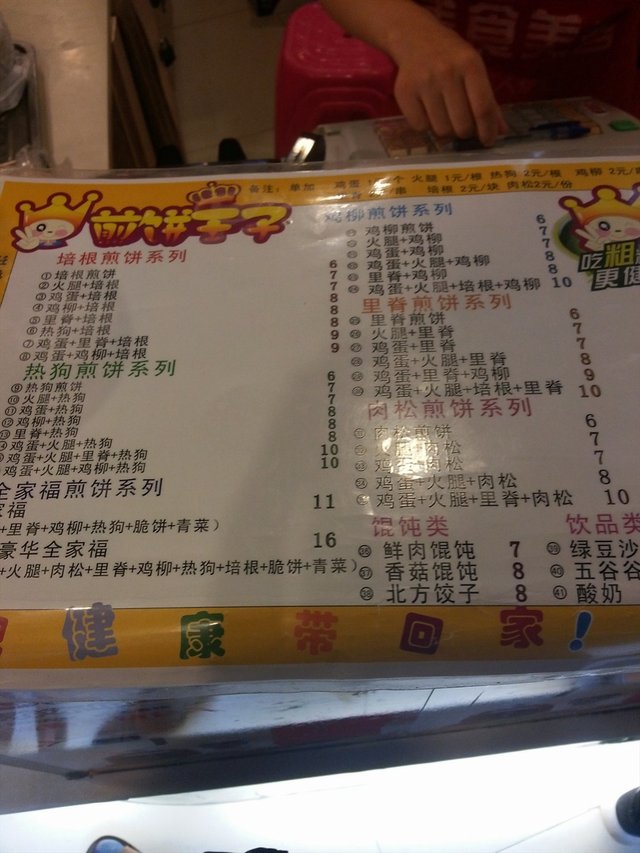 备注: 单加 鸡蛋 火腿 1元/根 热狗 2元/根 鸡柳 2元/
培根 2元/块 肉松2元/份
煎饼王子
吃粗
更健
培根煎饼系列
①培根煎饼 6
②火腿+培根 7
③鸡蛋+培根 7
④鸡柳+培根 8
⑤里脊+培根 8
⑥热狗+培根 8
⑦鸡蛋+里脊+培根 9
⑧鸡蛋+鸡柳+培根 9
热狗煎饼系列
⑨热狗煎饼 6
⑩火腿+热狗 7
⑪鸡蛋+热狗 7
⑫鸡柳+热狗 8
⑬里脊+热狗 8
鸡蛋+火腿+热狗 8
鸡蛋+火腿+里脊+热狗 10
鸡蛋+火腿+鸡柳+热狗 10
全家福煎饼系列
家福 11
+里脊+鸡柳+热狗+脆饼+青菜）
豪华全家福 16
+火腿+肉松+里脊+鸡柳+热狗+培根+脆饼+青菜）
鸡柳煎饼系列
鸡柳煎饼 6
火腿+鸡柳 7
鸡蛋+鸡柳 7
鸡蛋+火腿+鸡柳 8
里脊+鸡柳 8
鸡蛋+火腿+培根+鸡柳 10
里脊煎饼系列
里脊煎饼 6
火腿+里脊 7
鸡蛋+里脊 7
鸡蛋+火腿+里脊 8
鸡蛋+里脊+鸡柳 9
鸡蛋+火腿+培根+里脊 10
肉松煎饼系列
肉松煎饼 6
火腿+肉松 7
鸡蛋+肉松 7
鸡蛋+火腿+肉松 8
鸡蛋+火腿+里脊+肉松 10
馄饨类
㊱鲜肉馄饨 7
㊲香菇馄饨 8
㊳北方饺子 8
饮品类
㊴绿豆沙
㊵五谷
㊶酸奶
健康带回家!